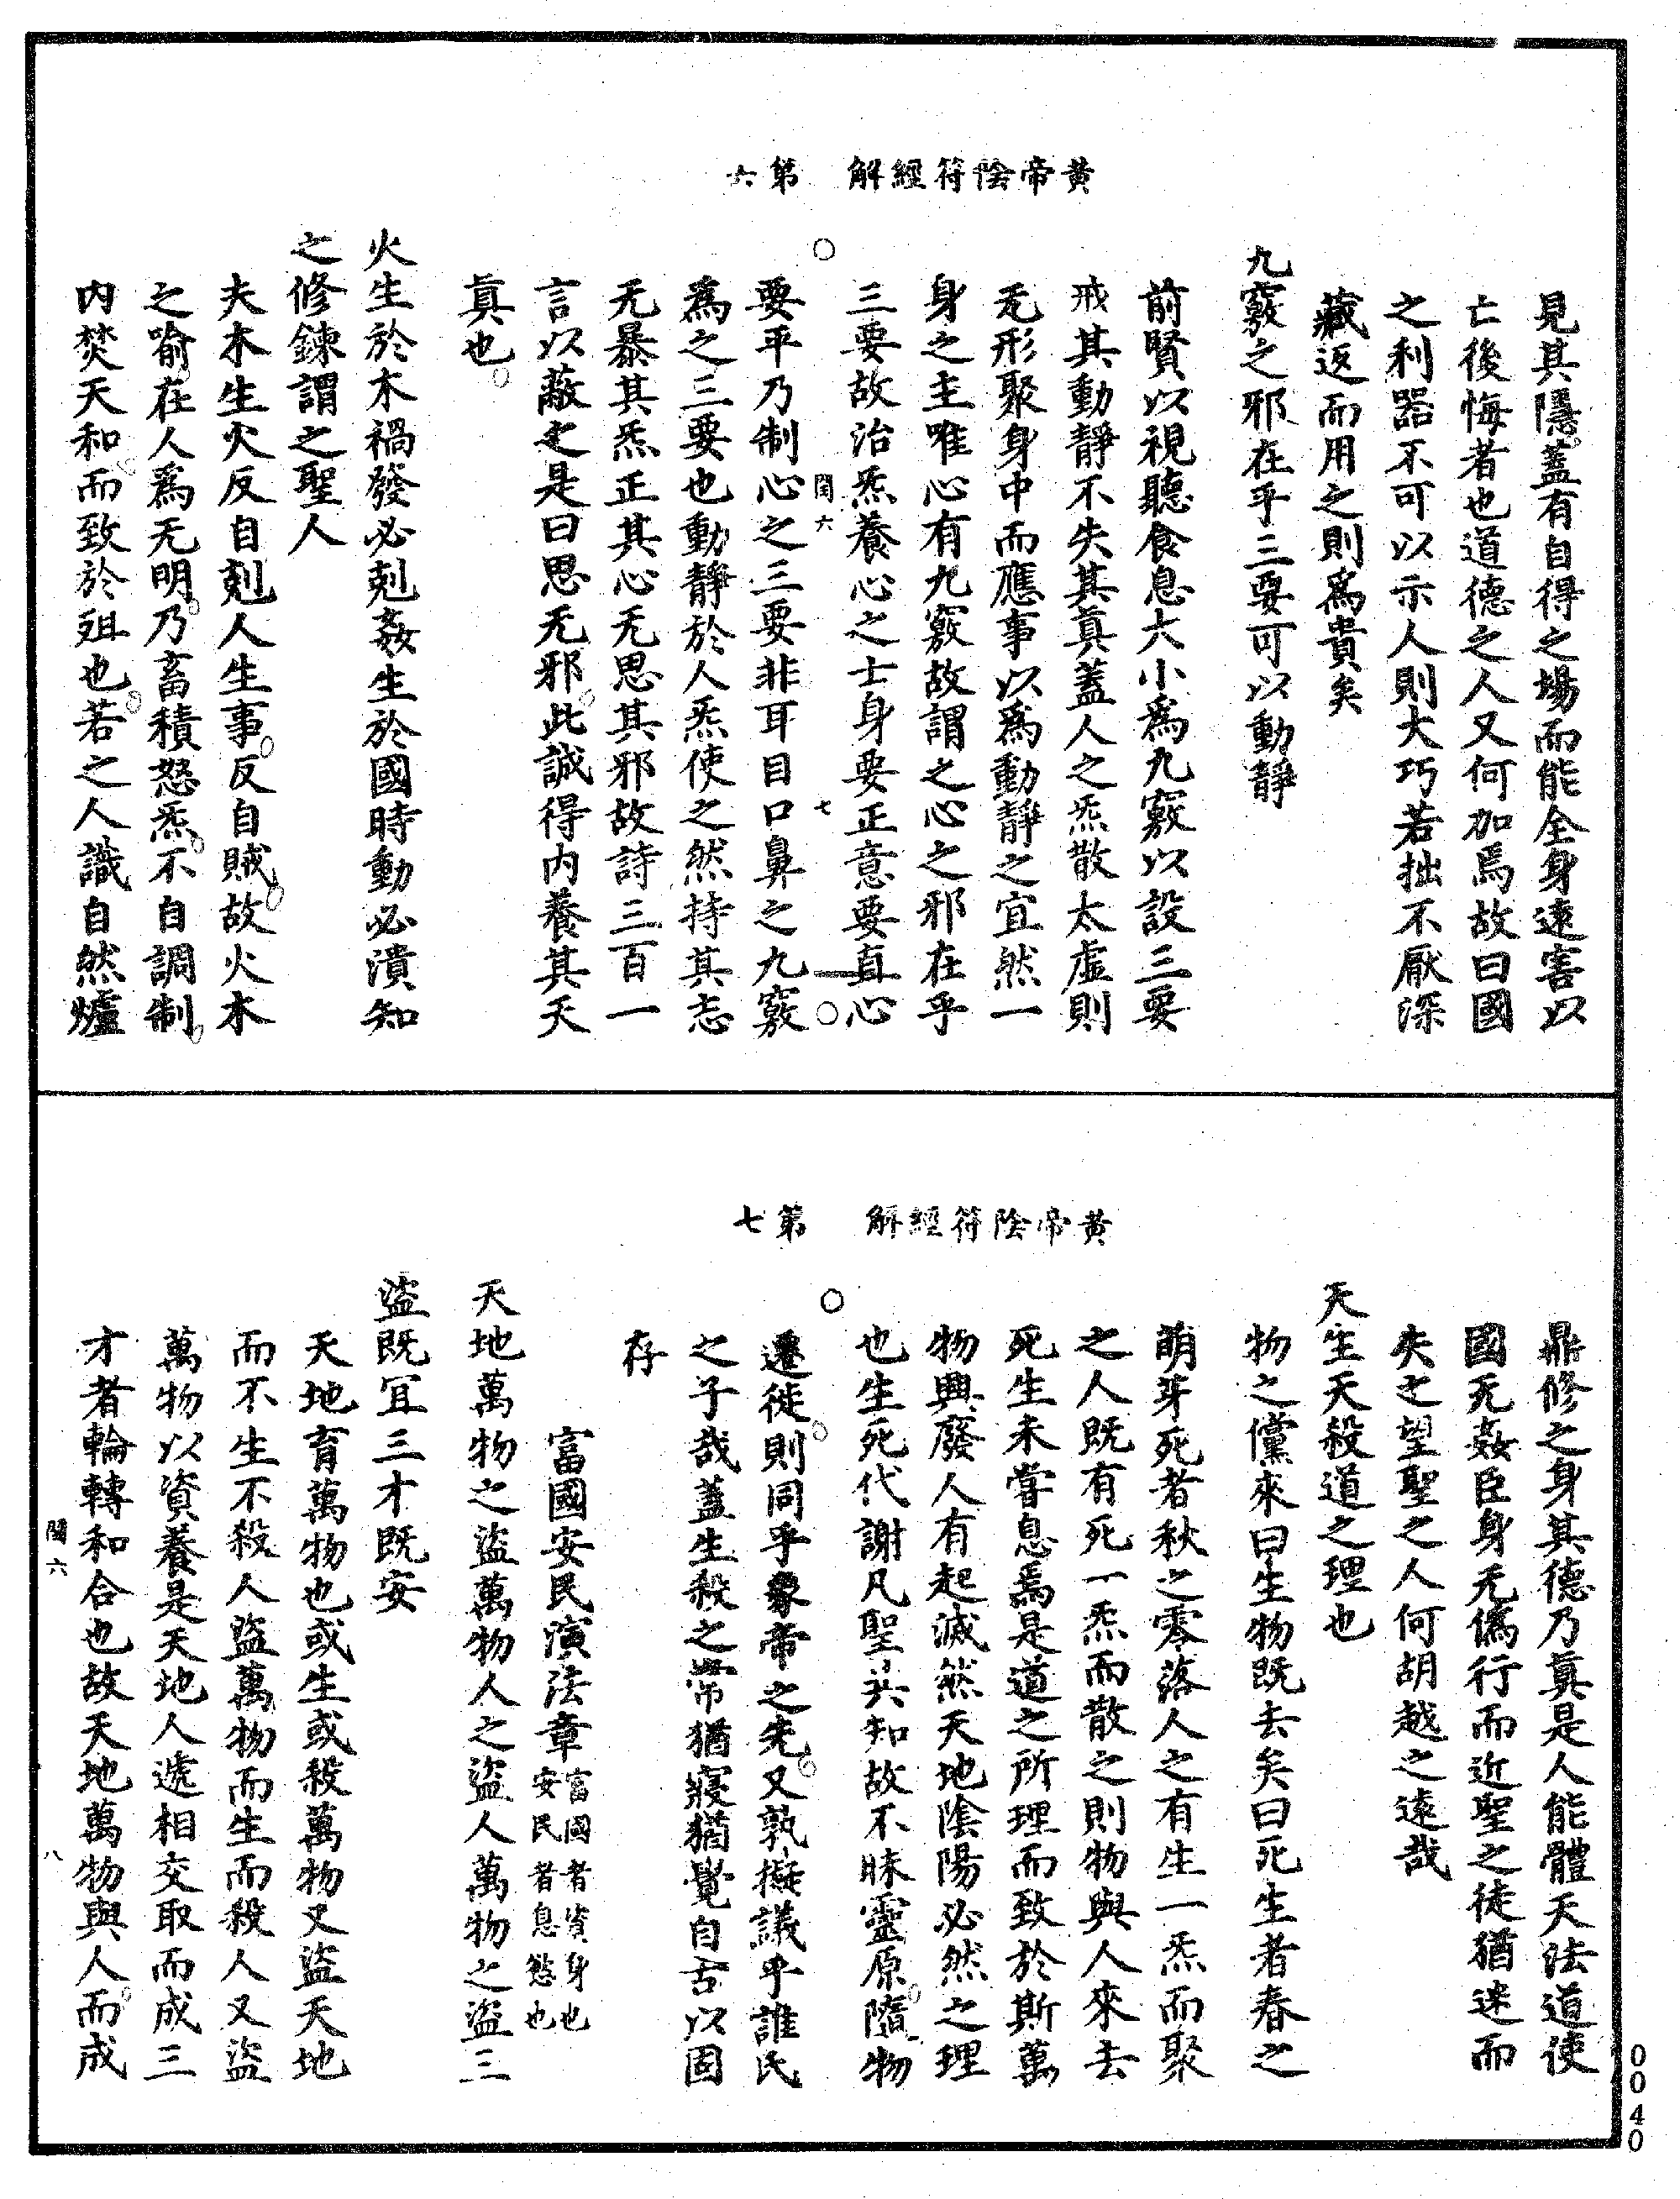 黃帝陰符經解　第六
見其隱蓋有自得之場而能全身遠害以
亡後悔者也道德之人又何加焉故曰國
之利器不可以示人則大巧若拙不厭深
藏返而用之則爲貴矣
九竅之邪在乎三要可以動靜
前賢以視聽食息大小爲九竅以設三要
戒其動靜不失其眞蓋人之炁散太虛則
无形聚身中而應事以爲動靜之宜然一
身之主唯心有九竅故謂之心之邪在乎
三要故治炁養心之士身要正意要直心
閏六　七
要平乃制心之三要非耳目口鼻之九竅
爲之三要也動靜於人炁使之然持其志
无暴其炁正其心无思其邪故詩三百一
言以蔽之是曰思无邪此誠得内養其天
眞也
火生於木禍發必剋姦生於國時動必潰知
之修鍊謂之聖人
夫木生火反自剋人生事反自賊故火木
之喻在人爲无明乃畜積怒炁不自調制
内焚天和而致於殂也若之人識自然爐
黃帝陰符經解　第七
鼎修之身其德乃眞是人能體天法道使
國无姦臣身无僞行而近聖之徒猶迷而
失之望聖之人何胡越之遠哉
天生天殺道之理也
物之儻來曰生物既去矣曰死生者春之
萌芽死者秋之零落人之有生一炁而聚
之人既有死一炁而散之則物與人來去
死生未嘗息焉是道之所理而致於斯萬
物興廢人有起滅然天地陰陽必然之理
也生死代謝凡聖共知故不昧靈原隨物
遷徙則同乎象帝之先又孰擬議乎誰氏
之子哉蓋生殺之常猶寢猶覺自古以固
存
富國安民演法章富國者資身也安民者息慾也
天地萬物之盜萬物人之盜人萬物之盜三
盜既宜三才既安
天地育萬物也或生或殺萬物又盜天地
而不生不殺人盜萬物而生而殺人又盜
萬物以資養是天地人遞相交取而成三
才者輪轉和合也故天地萬物與人而成
閏六　八
0040